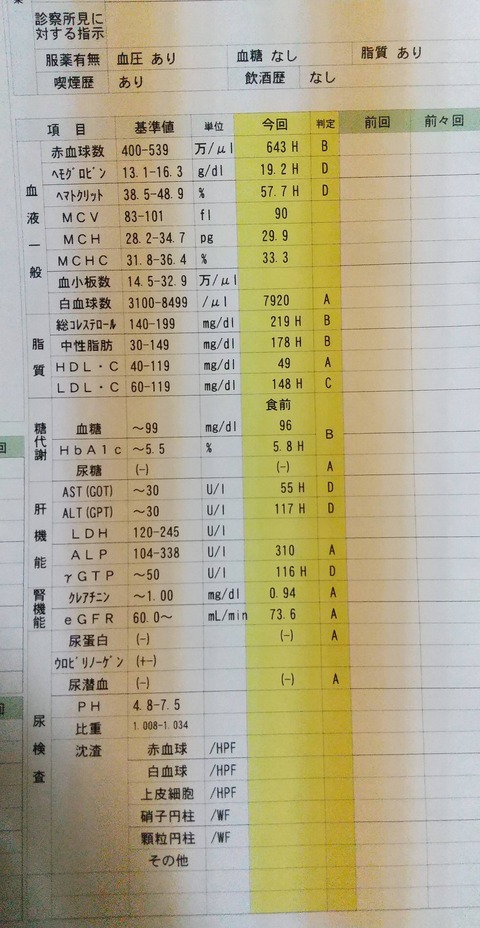 診察所見に
対する指示
服薬有無 血圧 あり 血糖 なし 脂質 あり
喫煙歴 あり 飲酒歴 なし
項 目 基準値 単位 今回 判定 前回 前々回
血液一般
赤血球数 400-539 万/μl 643 H B
ﾍﾓｸﾞﾛﾋﾞﾝ 13.1-16.3 g/dl 19.2 H D
ﾍﾏﾄｸﾘｯﾄ 38.5-48.9 % 57.7 H D
MCV 83-101 fl 90
MCH 28.2-34.7 pg 29.9
MCHC 31.8-36.4 % 33.3
血小板数 14.5-32.9 万/μl
白血球数 3100-8499 /μl 7920 A
脂質
総ｺﾚｽﾃﾛｰﾙ 140-199 mg/dl 219 H B
中性脂肪 30-149 mg/dl 178 H B
HDL・C 40-119 mg/dl 49 A
LDL・C 60-119 mg/dl 148 H C
糖代謝
食前
血糖 ～99 mg/dl 96 B
HbA1c ～5.5 % 5.8 H
尿糖 (-) (-) A
肝機能
AST(GOT) ～30 U/l 55 H D
ALT(GPT) ～30 U/l 117 H D
LDH 120-245 U/l
ALP 104-338 U/l 310 A
γGTP ～50 U/l 116 H D
腎機能
ｸﾚｱﾁﾆﾝ ～1.00 mg/dl 0.94 A
eGFR 60.0～ mL/min 73.6 A
尿検査
尿蛋白 (-) (-) A
ｳﾛﾋﾞﾘﾉｰｹﾞﾝ (+-)
尿潜血 (-) (-) A
PH 4.8-7.5
比重 1.008-1.034
沈渣 赤血球 /HPF
白血球 /HPF
上皮細胞 /HPF
硝子円柱 /WF
顆粒円柱 /WF
その他